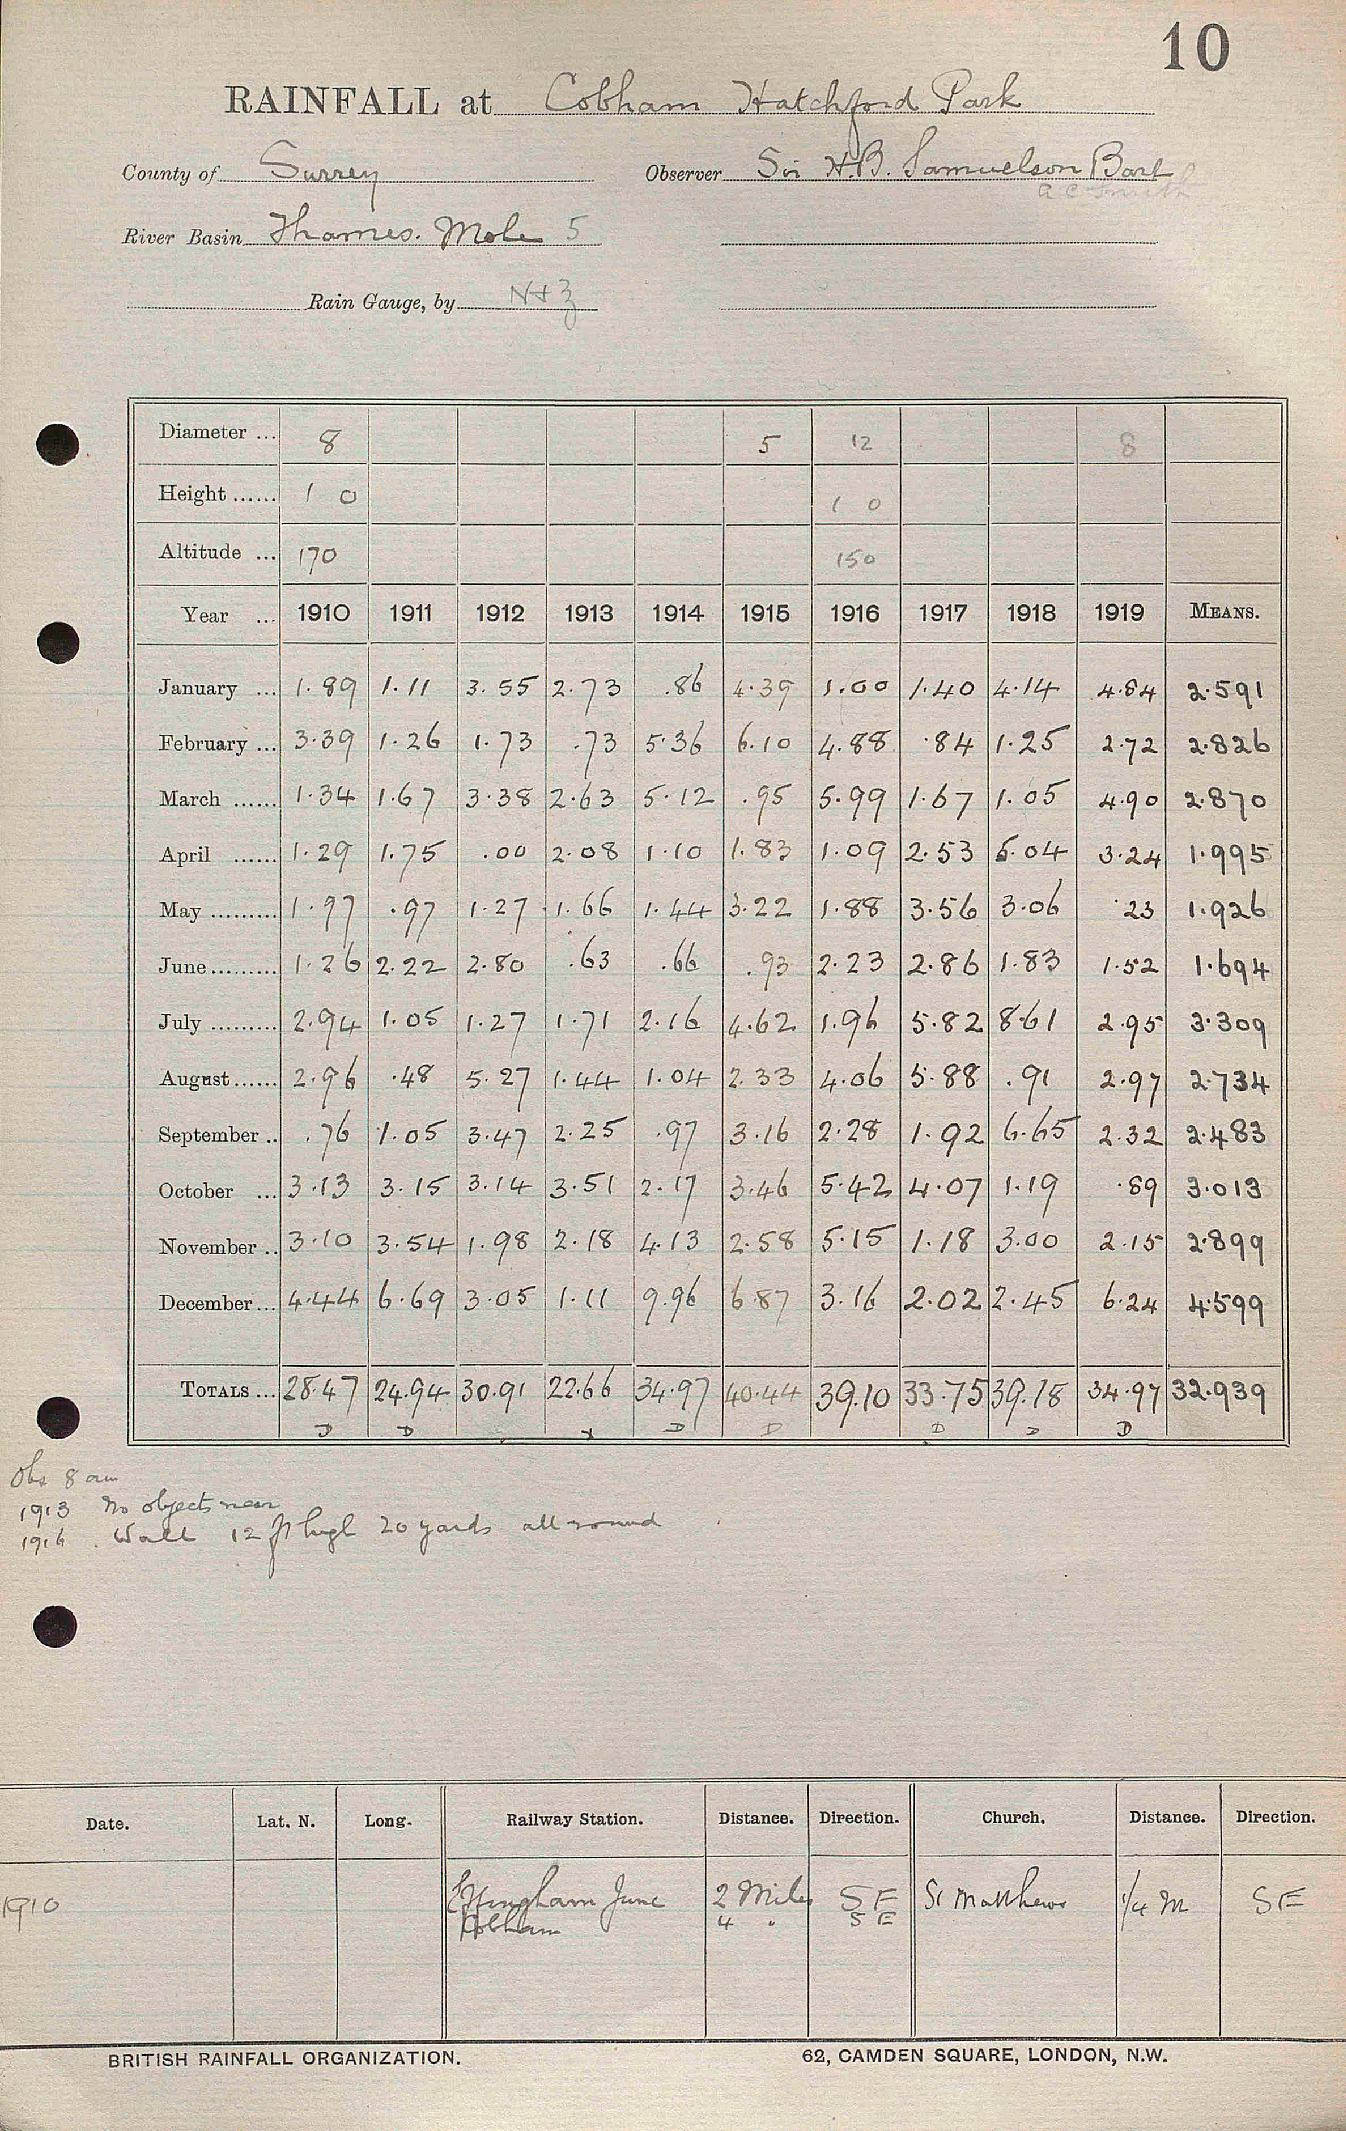 10
RAINFALL at Cobham Hatchford Park
County of Surrey Observer Sir H.B. Samuelson Bart
A C Smith
River Basin Thames. Mole 5
Rain Gauge, by N+Z
Diameter ... 8 5 12 8
Height ...... 1 0 1 0
Altitude ... 170 150
Year ... 1910 1911 1912 1913 1914 1915 1916 1917 1918 1919 MEANS.
January ... 1.89 1.11 3.55 2.73 .86 4.39 1.00 1.40 4.14 4.84 2.591
February ... 3.39 1.26 1.73 .73 5.36 6.10 4.88 .84 1.25 2.72 2.826
March ...... 1.34 1.67 3.38 2.63 5.12 .95 5.99 1.67 1.05 4.90 2.870
April ...... 1.29 1.75 .00 2.08 1.10 1.83 1.09 2.53 5.04 3.24 1.995
May .......... 1.97 .97 1.27 1.66 1.44 3.22 1.88 3.56 3.06 .23 1.926
June ......... 1.26 2.22 2.80 .63 .66 .93 2.23 2.86 1.83 1.52 1.694
July .......... 2.94 1.05 1.27 1.71 2.16 4.62 1.96 5.82 8.61 2.95 3.309
August ...... 2.96 .48 5.27 1.44 1.04 2.33 4.06 5.88 .91 2.97 2.734
September .. .76 1.05 3.47 2.25 .97 3.16 2.28 1.92 6.65 2.32 2.483
October ... 3.13 3.15 3.14 3.51 2.17 3.46 5.42 4.07 1.19 .89 3.013
November .. 3.10 3.54 1.98 2.18 4.13 2.58 5.15 1.18 3.00 2.15 2.899
December ... 4.44 6.69 3.05 1.11 9.96 6.87 3.16 2.02 2.45 6.24 4.599
TOTALS ... 28.47 24.94 30.91 22.66 34.97 40.44 39.10 33.75 39.18 34.97 32.939
D D x D D D D D
Obs 8 am
1913 No objects near
1916 Wall 12 ft high 20 yards all round
Date. Lat. N. Long. Railway Station. Distance. Direction. Church. Distance. Direction.
1910 Effingham Junc 2 Miles SE St Matthews 1/4 M SE
Cobham 4 " SE
BRITISH RAINFALL ORGANIZATION. 62, CAMDEN SQUARE, LONDON, N.W.